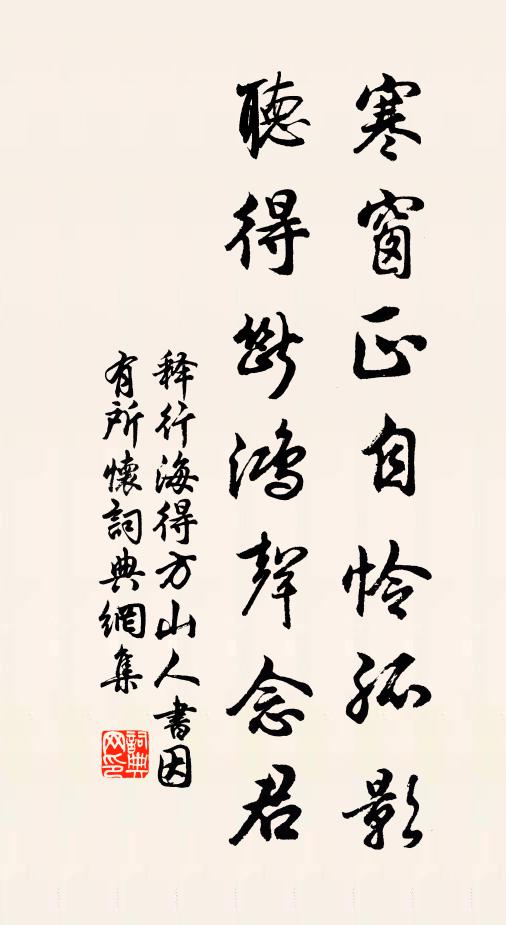 寒窗正自怜孤影
聽得断鴻聲念君
释行海得方山人書因
有所懷詞典網集
詞典
网印